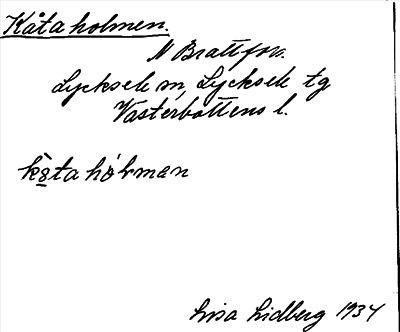 Kåtaholmen.
N Brattfor.
Lycksele sn, Lycksele tg
Västerbottens l.
kɑ̊̀ta hólman
Lisa Lidberg 1934